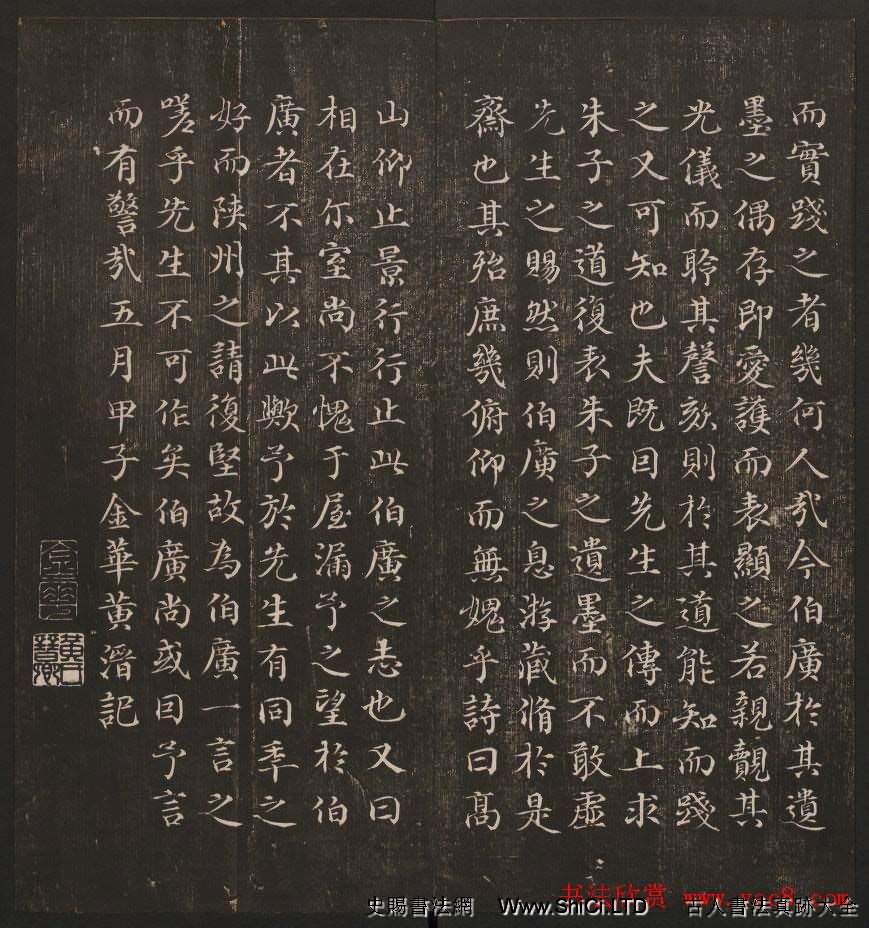 而實踐之者幾何人哉今伯廣於其遺
墨之偶存即愛護而表顯之若親覿其
光儀而聆其謦欬則於其道能知而踐
之又可知也夫既因先生之傳而上求
朱子之道復表朱子之遺墨而不敢虛
先生之賜然則伯廣之息游藏脩於是
齋也其殆庶幾俯仰而無媿乎詩曰髙
山仰止景行行止此伯廣之志也又曰
相在尔室尚不愧于屋漏予之望於伯
廣者不其以此歟予於先生有同年之
好而陕州之請復堅故為伯廣一言之
嗟乎先生不可作矣伯廣尚或因予言
而有警哉五月甲子金華黄溍記
书法欣赏
史賜書法網 Www.ShiCh.LTD 古人書法真跡大全